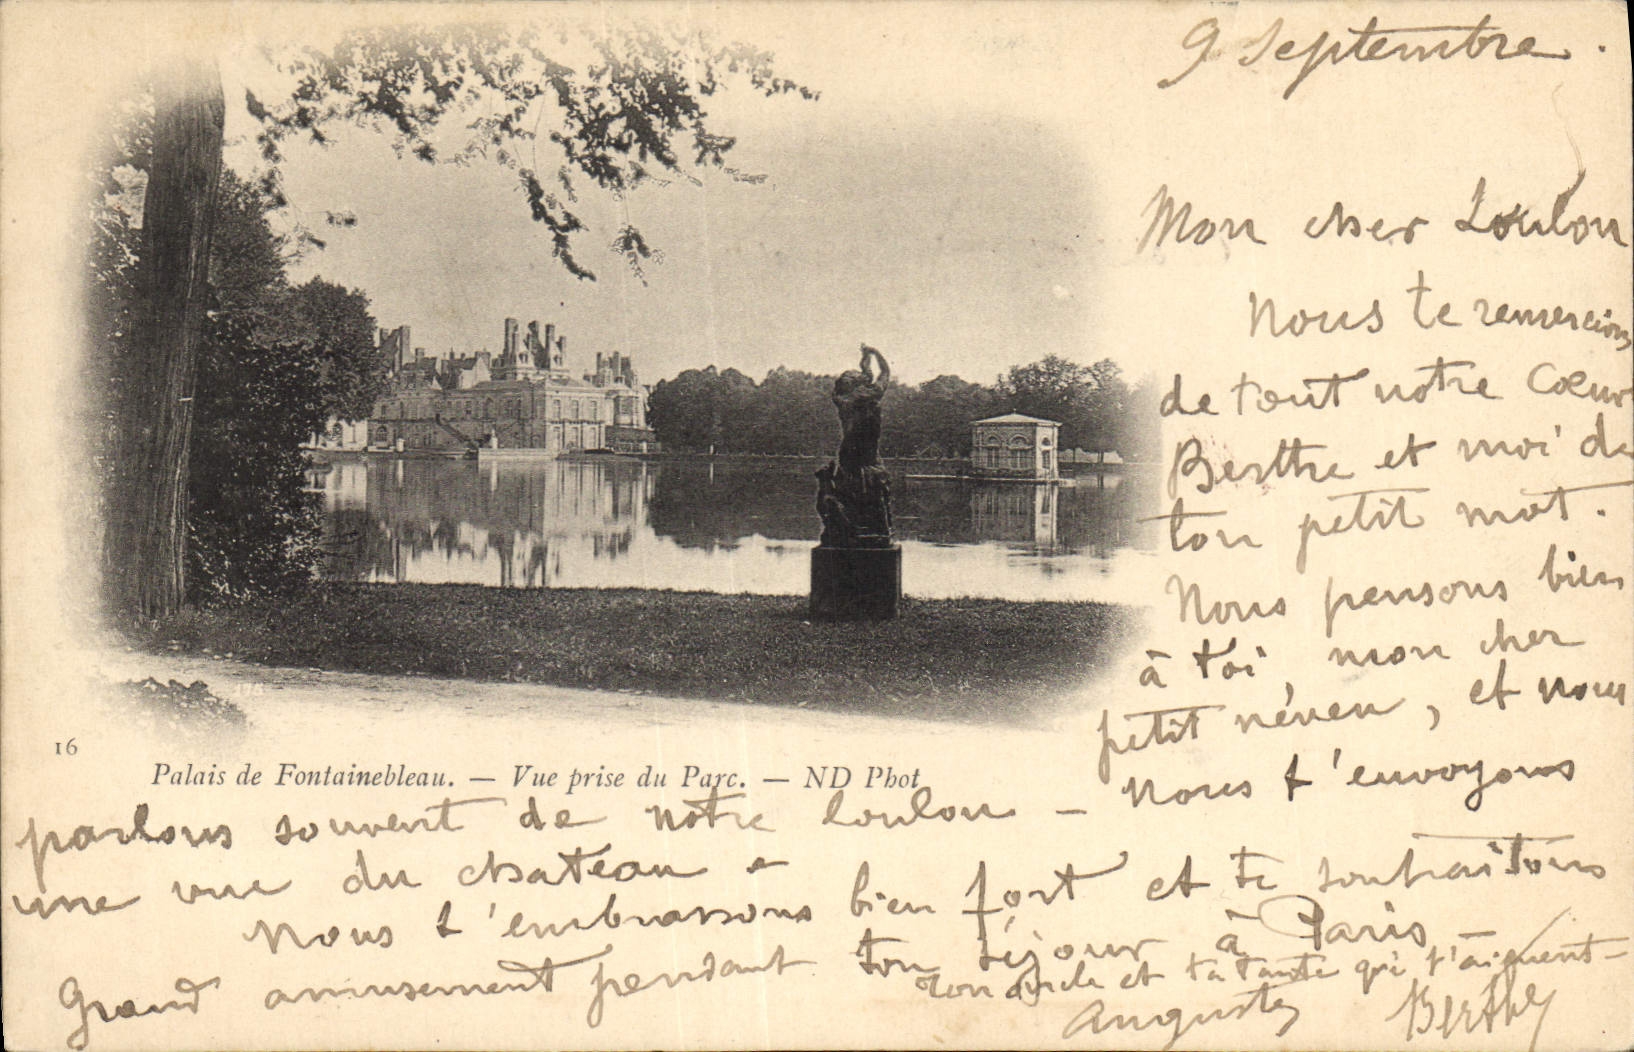 9 Septembre.
Mon cher Loulou
Nous te remercions
de tout notre Coeur
Berthe et moi de
ton petit mot.
Nous pensons bien
à toi, mon cher
petit néveu, et nous
16
Palais de Fontainebleau. — Vue prise du Parc. — ND Phot
parlons souvent de notre loulou — Nous t'envoyons
une vue du chateau —
Nous t'embrassons bien fort et te souhaitons
Grand amusement pendant ton séjour à Paris
Ton oncle et ta tante qui t'aiment —
Auguste Berthe